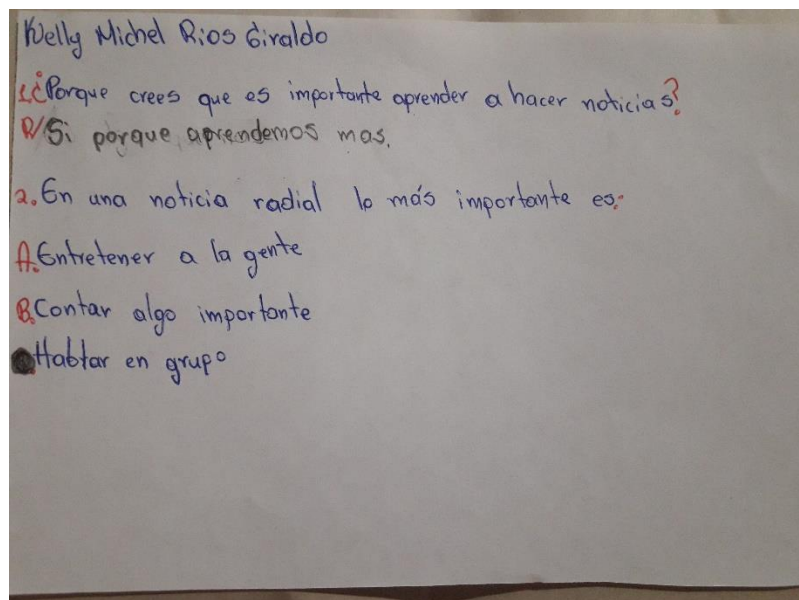 Welly Michel Rios Giraldo
1.¿Porque crees que es importante aprender a hacer noticias?
R/ Si porque aprendemos mas.
2. En una noticia radial lo más importante es:
A. Entretener a la gente
B. Contar algo importante
Hablar en grupo